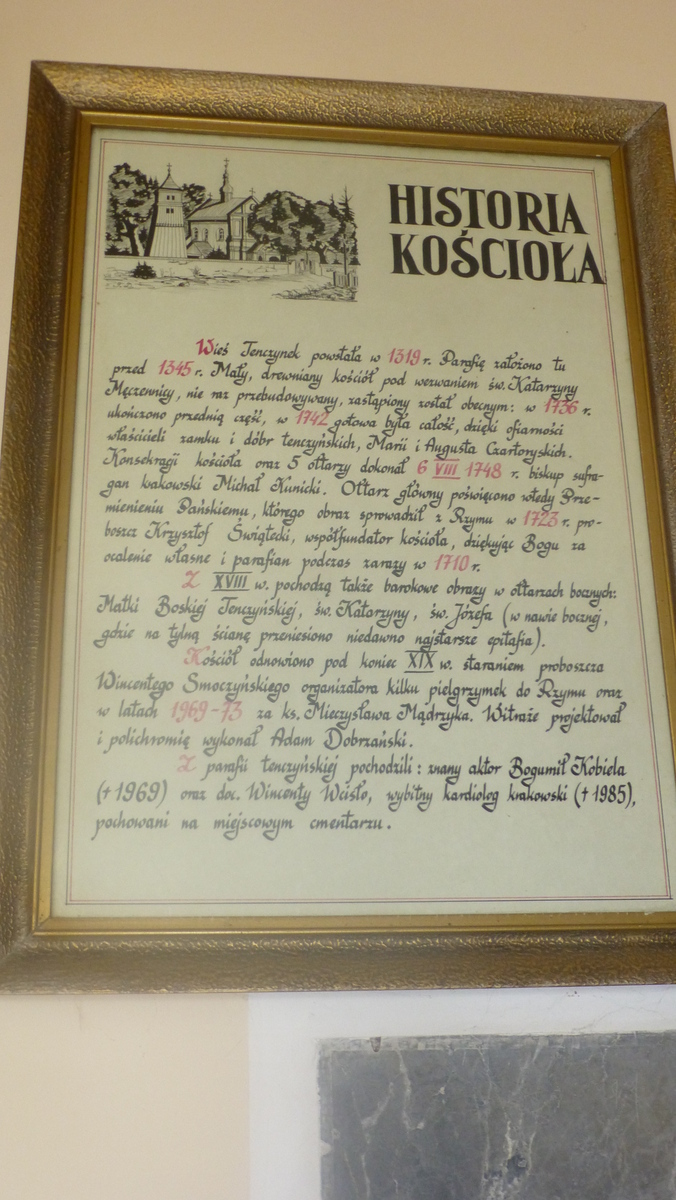 HISTORIA
KOŚCIOŁA
Wieś Tenczynek powstała w 1319 r. Parafię założono tu
przed 1345 r. Mały, drewniany kościół pod wezwaniem św. Katarzyny
Męczennicy, nie raz przebudowywany, zastąpiony został obecnym: w 1736 r.
ukończono przednią część, w 1742 gotowa była całość, dzięki ofiarności
właścicieli zamku i dóbr tenczyńskich, Marii i Augusta Czartoryskich.
Konsekracji kościoła oraz 5 ołtarzy dokonał 6 VIII 1748 r. biskup sufra-
gan krakowski Michał Kunicki. Ołtarz główny poświęcono wtedy Prze-
mienieniu Pańskiemu, którego obraz sprowadził z Rzymu w 1723 r. pro-
boszcz Krzysztof Świątecki, współfundator kościoła, dziękując Bogu za
ocalenie własne i parafian podczas zarazy w 1710 r.
Z XVIII w. pochodzą także barokowe obrazy w ołtarzach bocznych:
Matki Boskiej Tenczyńskiej, św. Katarzyny, św. Józefa (w nawie bocznej,
gdzie na tylną ścianę przeniesiono niedawno najstarsze epitafia).
Kościół odnowiono pod koniec XIX w. staraniem proboszcza
Wincentego Smoczyńskiego organizatora kilku pielgrzymek do Rzymu oraz
w latach 1969-73 za ks. Mieczysława Mądrzyka. Witraże projektował
i polichromię wykonał Adam Dobrzański.
Z parafii tenczyńskiej pochodzili: znany aktor Bogumił Kobiela
(+1969) oraz doc. Wincenty Wcisło, wybitny kardiolog krakowski (+1985),
pochowani na miejscowym cmentarzu.